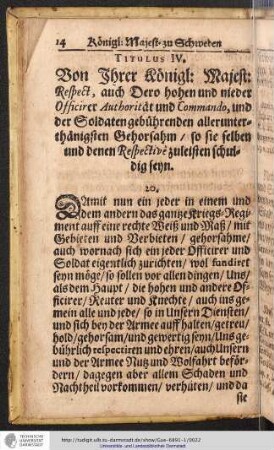 14 Königl: Majest. zu Schweden
TITULUS IV.
Von Ihrer Königl: Majest:
Respect, auch Dero hohen und nieder
Officirer Authorität und Commando, und
der Soldaten gebührenden allerunter-
thänigsten Gehorsahm / so sie selben
und denen Respectivè zuleisten schul-
dig seyn.
20.
Damit nun ein jeder in einem und
dem andern das gantze Kriegs-Regi-
ment auff eine rechte Weiß und Maß / mit
Gebieten und Verbieten / gehorsahme /
auch wornach sich ein jeder Officirer und
Soldat eigentlich zurichten / wol fundiret
seyn möge / so sollen vor allen dingen / Uns /
als dem Haupt / die hohen und andere Of-
ficirer / Reuter und Knechte / auch ins ge-
mein alle und jede / so in Unsern Diensten /
und sich bey der Armee auff halten / getreu /
hold / gehorsam / und gewertig seyn / Uns ge-
bührlich respectiren und ehren / auch Unsern
und der Armee Nutz und Wolfahrt beför-
dern / dagegen aber allem Schaden und
Nachtheil vorkommen / verhüten / und da
sie
TECHNISCHE
UNIVERSITÄT
DARMSTADT
http://tudigit.ulb.tu-darmstadt.de/show/Gue-6891-1/0022
Universitäts- und Landesbibliothek Darmstadt